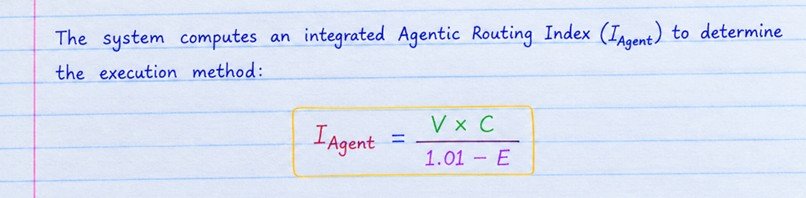 The system computes an integrated Agentic Routing Index (I_Agent) to determine
the execution method:
I_Agent = (V × C) / (1.01 − E)